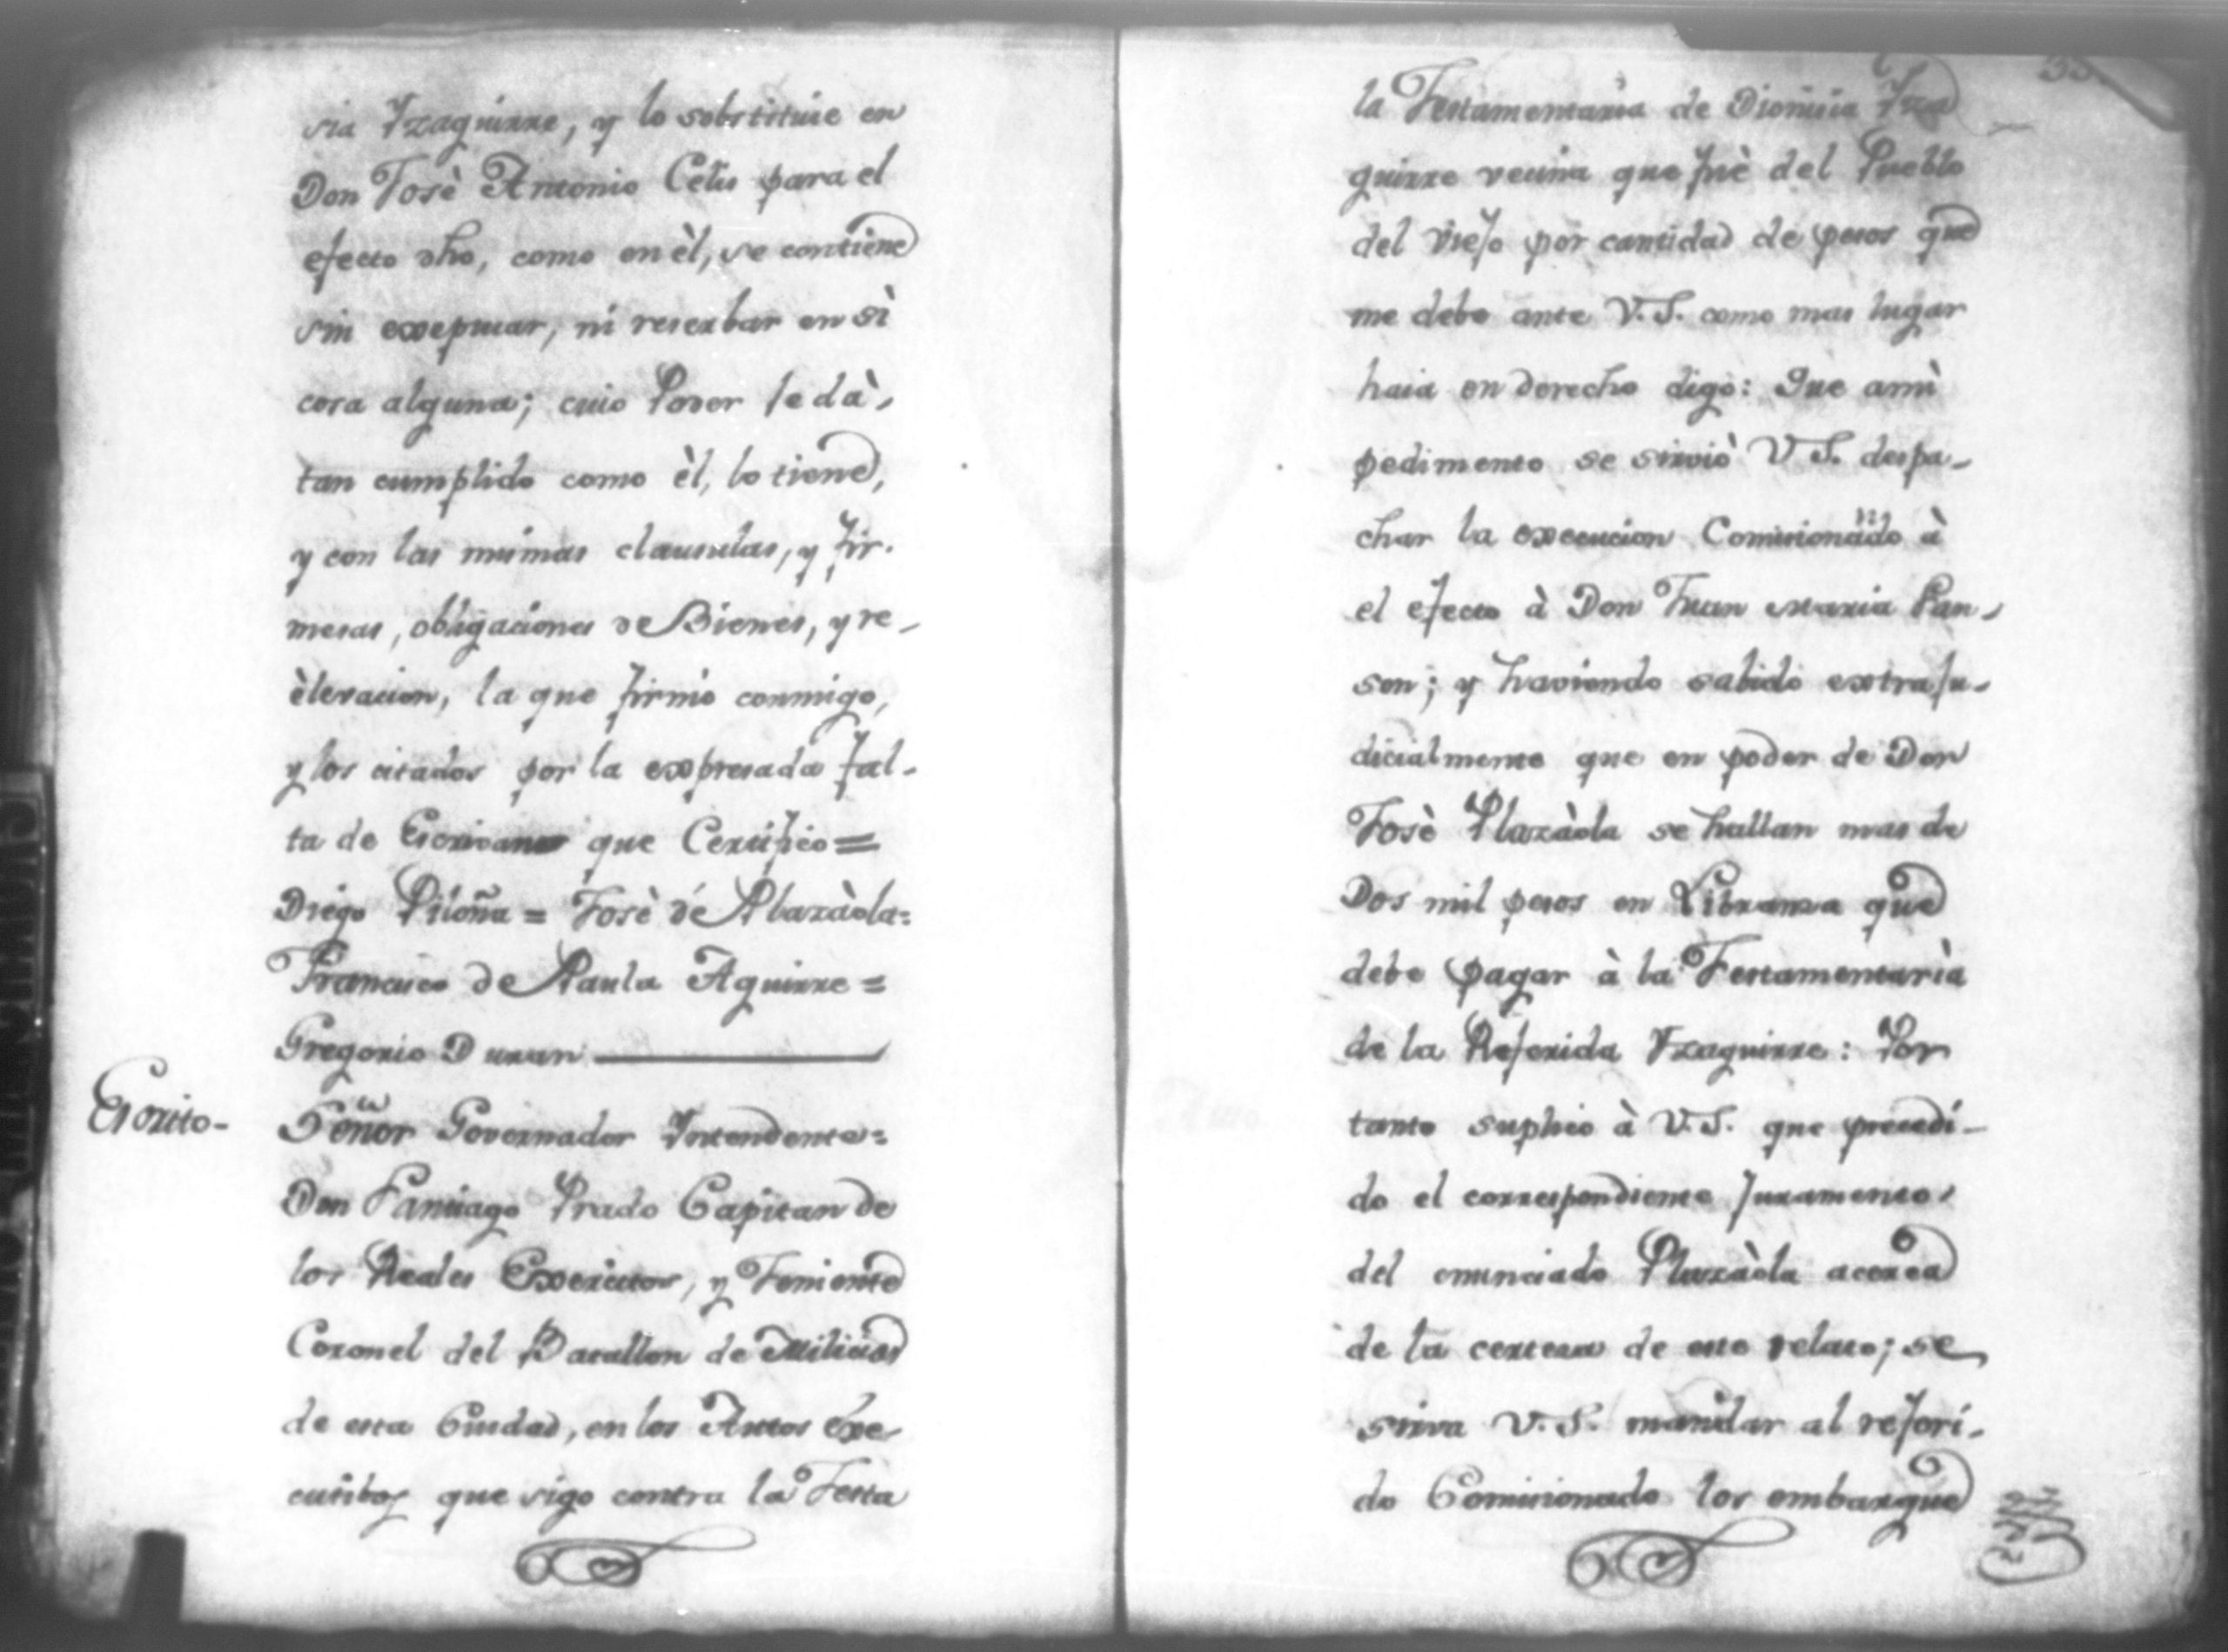 sia Yzaguirre, y lo substituie en
Don Josè Antonio Celis para el
efecto dho, como en èl, se contiene
sin exseptuar, ni reserbar en sì
cosa alguna; cuio Poder le dà,
tan cumplido como èl, lo tiene,
y con las mismas clausulas, y fir-
mesas, obligaciones de Bienes, y re-
èlevacion, la que firmò conmigo,
y los citados por la expresada fal-
ta de Escrivano que Certifico =
Diego Piloña = Josè de Plazàola =
Francisco de Paula Aguirre =
Gregorio Duran
Escrito-
Señor Governador Yntendente =
Don Santiago Prado Capitan de
los Reales Exercitos, y Teniente
Coronel del Batallon de Milicias
de esta Ciudad, en los Autos Exe-
cutibos que sigo contra la Testa
la Testamentaria de Dionisia Yza
guirre vecina que fuè del Pueblo
del Viejo por cantidad de pesos que
me debe ante V.S. como mas lugar
haia en derecho digo: Que amì
pedimento se sirviò V.S. despa-
char la execucion Comisionando à
el efecto à Don Juan Maria Pan-
son; y haviendo sabido extraju-
dicialmente que en poder de Don
Josè Plazàola se hallan mas de
Dos mil pesos en Libranza que
debe pagar à la Testamentarìa
de la Referida Yzaguirre: Por
tanto suplico à V.S. que precedi-
do el correspondiente Juramento
del enunciado Plazàola acerca
de la certesa de este relato; se
sirva V.S. mandar al referi-
do Comisionado los embargue